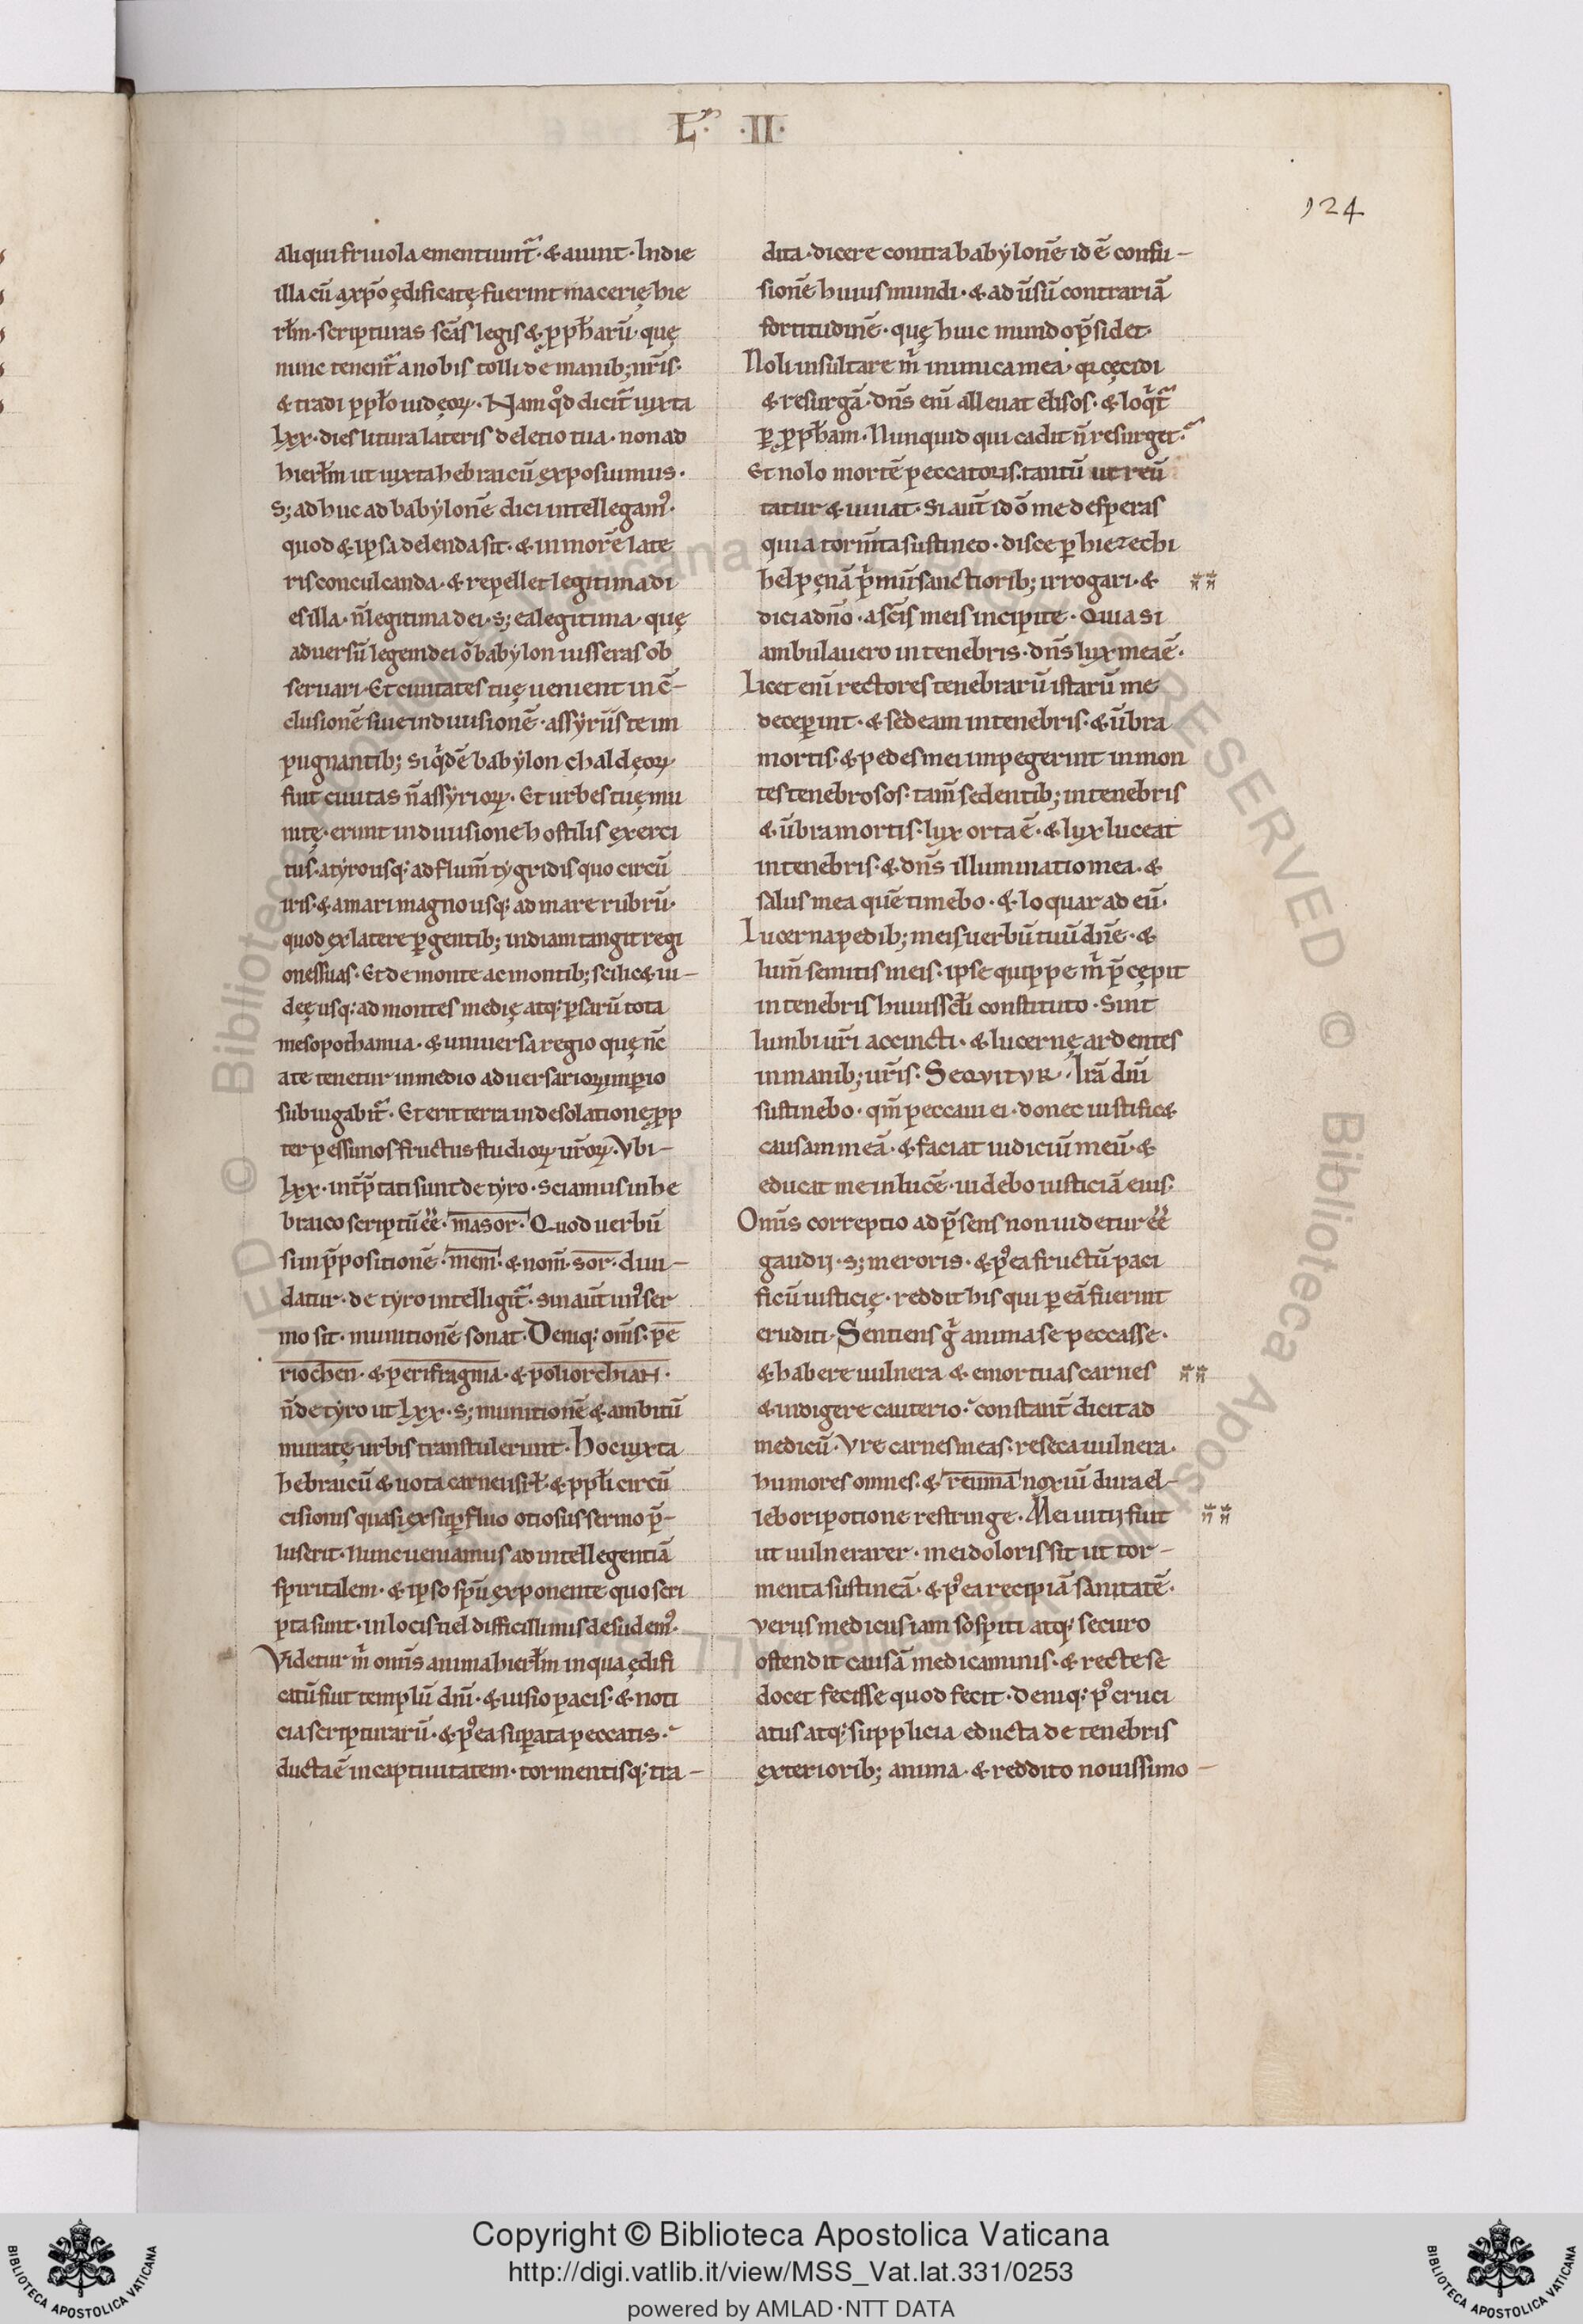 L͞. ·II·
124
aliqui friuola ementiunt᷑·& aiunt·In die
illa cū a xp̄o ędificatę fuerint macerię hie
rl̄m·scripturas sc̄as legis & ꝓph̄arū·quę
nunc tenent᷑ a nobis tolli de manib; nr̄is·
& tradi ppl̄o iudęoꝝ·Nam qđ dicit᷑ iuxta
lxx·dies litura lateris deletio tua·non ad
hierl̄m ut iuxta hebraicū exposuimus·
s; adhuc ad babylonē dici intellegam᷒·
quod & ipsa delenda sit·& in morē late
ris conculcanda·& repellet legitima di
es illa·n̄ legitima dei·s; ea legitima·quę
aduersū legem dei ō babylon iusseras ob
seruari·Et ciuitates tuę uenient in c̄-
clusionē siue in diuisionē·assyriis te im
pugnantib; siqͥdē babylon chaldęoꝝ
fuit ciuitas n̄ assyrioꝝ·Et urbes tuę mu
nitę·erunt in diuisione hostilis exerci
tus·a tyro usq; ad flum̄ tygridis quo circū
iris·& a mari magno usq; ad mare rubrū·
quod ex latere ꝑgentib; indiam tangit regi
ones suas·Et de monte ac montib; scilic& iu-
deę usq; ad montes medię atq; ꝑsarū tota
mesopothamia·& uniuersa regio quę nc̄
a te tenetur in medio aduersarioꝝ imꝑio
subiugabit᷑·Et erit terra in desolationē ꝓp
ter pessimos fructus studioꝝ ur̄oꝝ·Vbi-
lxx·int̄p̄tati sunt de tyro·sciamus in he
braico scriptū ēē·masor·Quod uerbū
si in p̄positionē·mem·& nom̄·sor·diui-
datur·de tyro intelligit᷑·sin aut̄ un᷒ ser
mo sit·munitionē sonat·Deniq; om̄s·pe
riochen·& perifragma·& poliorchian·
n̄ de tyro ut lxx·s; munitionē & ambitū
muratę urbis transtulerunt·Hoc iuxta
hebraicū & uota carneus isrł·& ppl̄i circū
cisionis quasi ex suꝑfluo otiosus sermo p̄-
luserit·Nunc ueniamus ad intellegentiā
spiritalem·& ipso sp̄u exponente quo scri
pta sunt·in locis uel difficillimis desudem᷒·
Videtur m̄ om̄s anima hierl̄m in qua ędifi
catū fuit templū dn̄i·& uisio pacis·& noti
cia scripturarū·& p᷒ea suꝑata peccatis·
ducta ē in captiuitatem·tormentisq; tra-
dita·dicere contra babylonē id ē confu-
sionē huius mundi·& aduersū contrariā
fortitudinē·quę huic mundo p̄sidet·
Noli insultare m̄ inimica mea·qa cęcidi
& resurgā·dn̄s eni alleuat elisos·& loqͥt᷑
ꝑ ꝓph̄am·Nunquid qui cadit n̄ resurget·
Et nolo mortē peccatoris·tantū ut reū
tatur & uiuat·Si aut̄ idō me desperas
quia torm̄ta sustineo·disce ꝑ hiezechi
hel pęnā pͥmū sanctiorib; irrogari·&
dici a dn̄o·a sc̄is meis incipite·Quia si
ambulauero in tenebris·dn̄s lux mea ē·
Licet eni rectores tenebrarū istarū me
deceꝑint·& sedeam in tenebris·& ūbra
mortis·& pedes mei impegerint in mon
tes tenebrosos·tam̄ sedentib; in tenebris
& ūbra mortis·lux orta ē·& lux luceat
in tenebris·& dn̄s illuminatio mea·&
salus mea quē timebo·& loquar ad eū·
Lucerna pedib; meis uerbū tuū dn̄e·&
lum̄ semitis meis·ipse quippe m̄ p̄cępit
in tenebris huius sc̄li constituto·Sint
lumbi ur̄i accincti·& lucernę ardentes
in manib; ur̄is·SEQVITVR·Irā dn̄i
sustinebo·qm̄ peccaui ei·donec iustific&
causam meā·& faciat iudiciū meū·&
educat me in lucē·uidebo iusticiā eius·
Om̄is correptio ad p̄sens non uidetur ēē
gaudij·s; meroris·& p᷒ea fructū paci
ficū iusticię·reddit his qui ꝑ eā fuerint
eruditi·Sentiens gͦ anima se peccasse·
& habere uulnera & emortuas carnes
& indigere cauterio·constant̄ dicit ad
medicū·Vre carnes meas·reseca uulnera·
humores omnes·& reuma noxiū dura el-
lebori potione restringe·Mei uitij fuit
ut uulnerarer·mei doloris sit ut tor-
menta sustineā·& p᷒ea recipiā sanitatē·
Verus medicus iam sospiti atq; securo
ostendit causā medicaminis·& recte se
docet fecisse quod fecit·Deniq; p᷒ cruci
atus atq; supplicia educta de tenebris
exteriorib; anima·& reddito nouissimo-
Copyright © Biblioteca Apostolica Vaticana
http://digi.vatlib.it/view/MSS_Vat.lat.331/0253
powered by AMLAD·NTT DATA